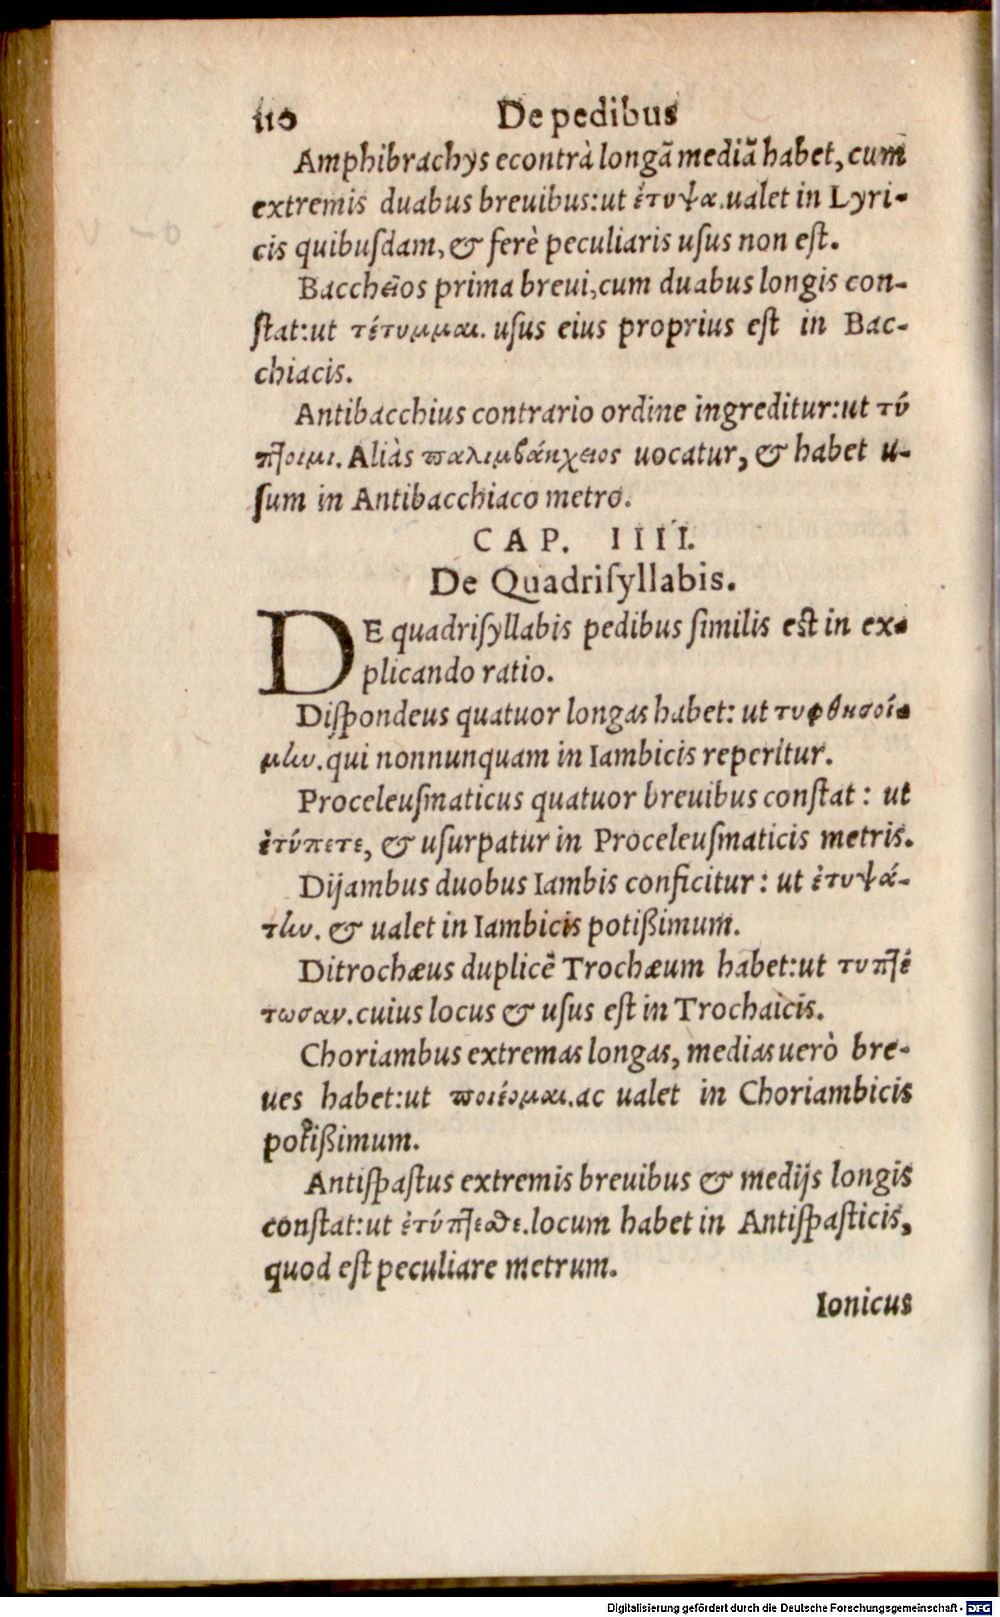 110 De pedibus
Amphibrachys econtrà longā mediā habet, cum
extremis duabus breuibus: ut ἔτυψα. ualet in Lyri-
cis quibuſdam, & ferè peculiaris uſus non eſt.
Baccheῖos prima breui, cum duabus longis con-
ſtat: ut τέτυμμαι. uſus eius proprius eſt in Bac-
chiacis.
Antibacchius contrario ordine ingreditur: ut τύ
πτοιμι. Aliàs παλιμβάκχειος uocatur, & habet u-
ſum in Antibacchiaco metro.
CAP. IIII.
De Quadriſyllabis.
DE quadriſyllabis pedibus ſimilis eſt in ex-
plicando ratio.
Diſpondeus quatuor longas habet: ut τυφθησοί-
μην. qui nonnunquam in Iambicis reperitur.
Proceleuſmaticus quatuor breuibus conſtat: ut
ἐτύπετε, & uſurpatur in Proceleuſmaticis metris.
Dijambus duobus Iambis conficitur: ut ἐτυψά-
την. & ualet in Iambicis potißimum.
Ditrochæus duplicē Trochæum habet: ut τυπτέ
τωσαν. cuius locus & uſus eſt in Trochaicis.
Choriambus extremas longas, medias uerò bre-
ues habet: ut ποιέομαι. ac ualet in Choriambicis
potißimum.
Antiſpaſtus extremis breuibus & medijs longis
conſtat: ut ἐτύπτεσθε. locum habet in Antiſpaſticis,
quod eſt peculiare metrum.
Ionicus
Digitalisierung gefördert durch die Deutsche Forschungsgemeinschaft - DFG